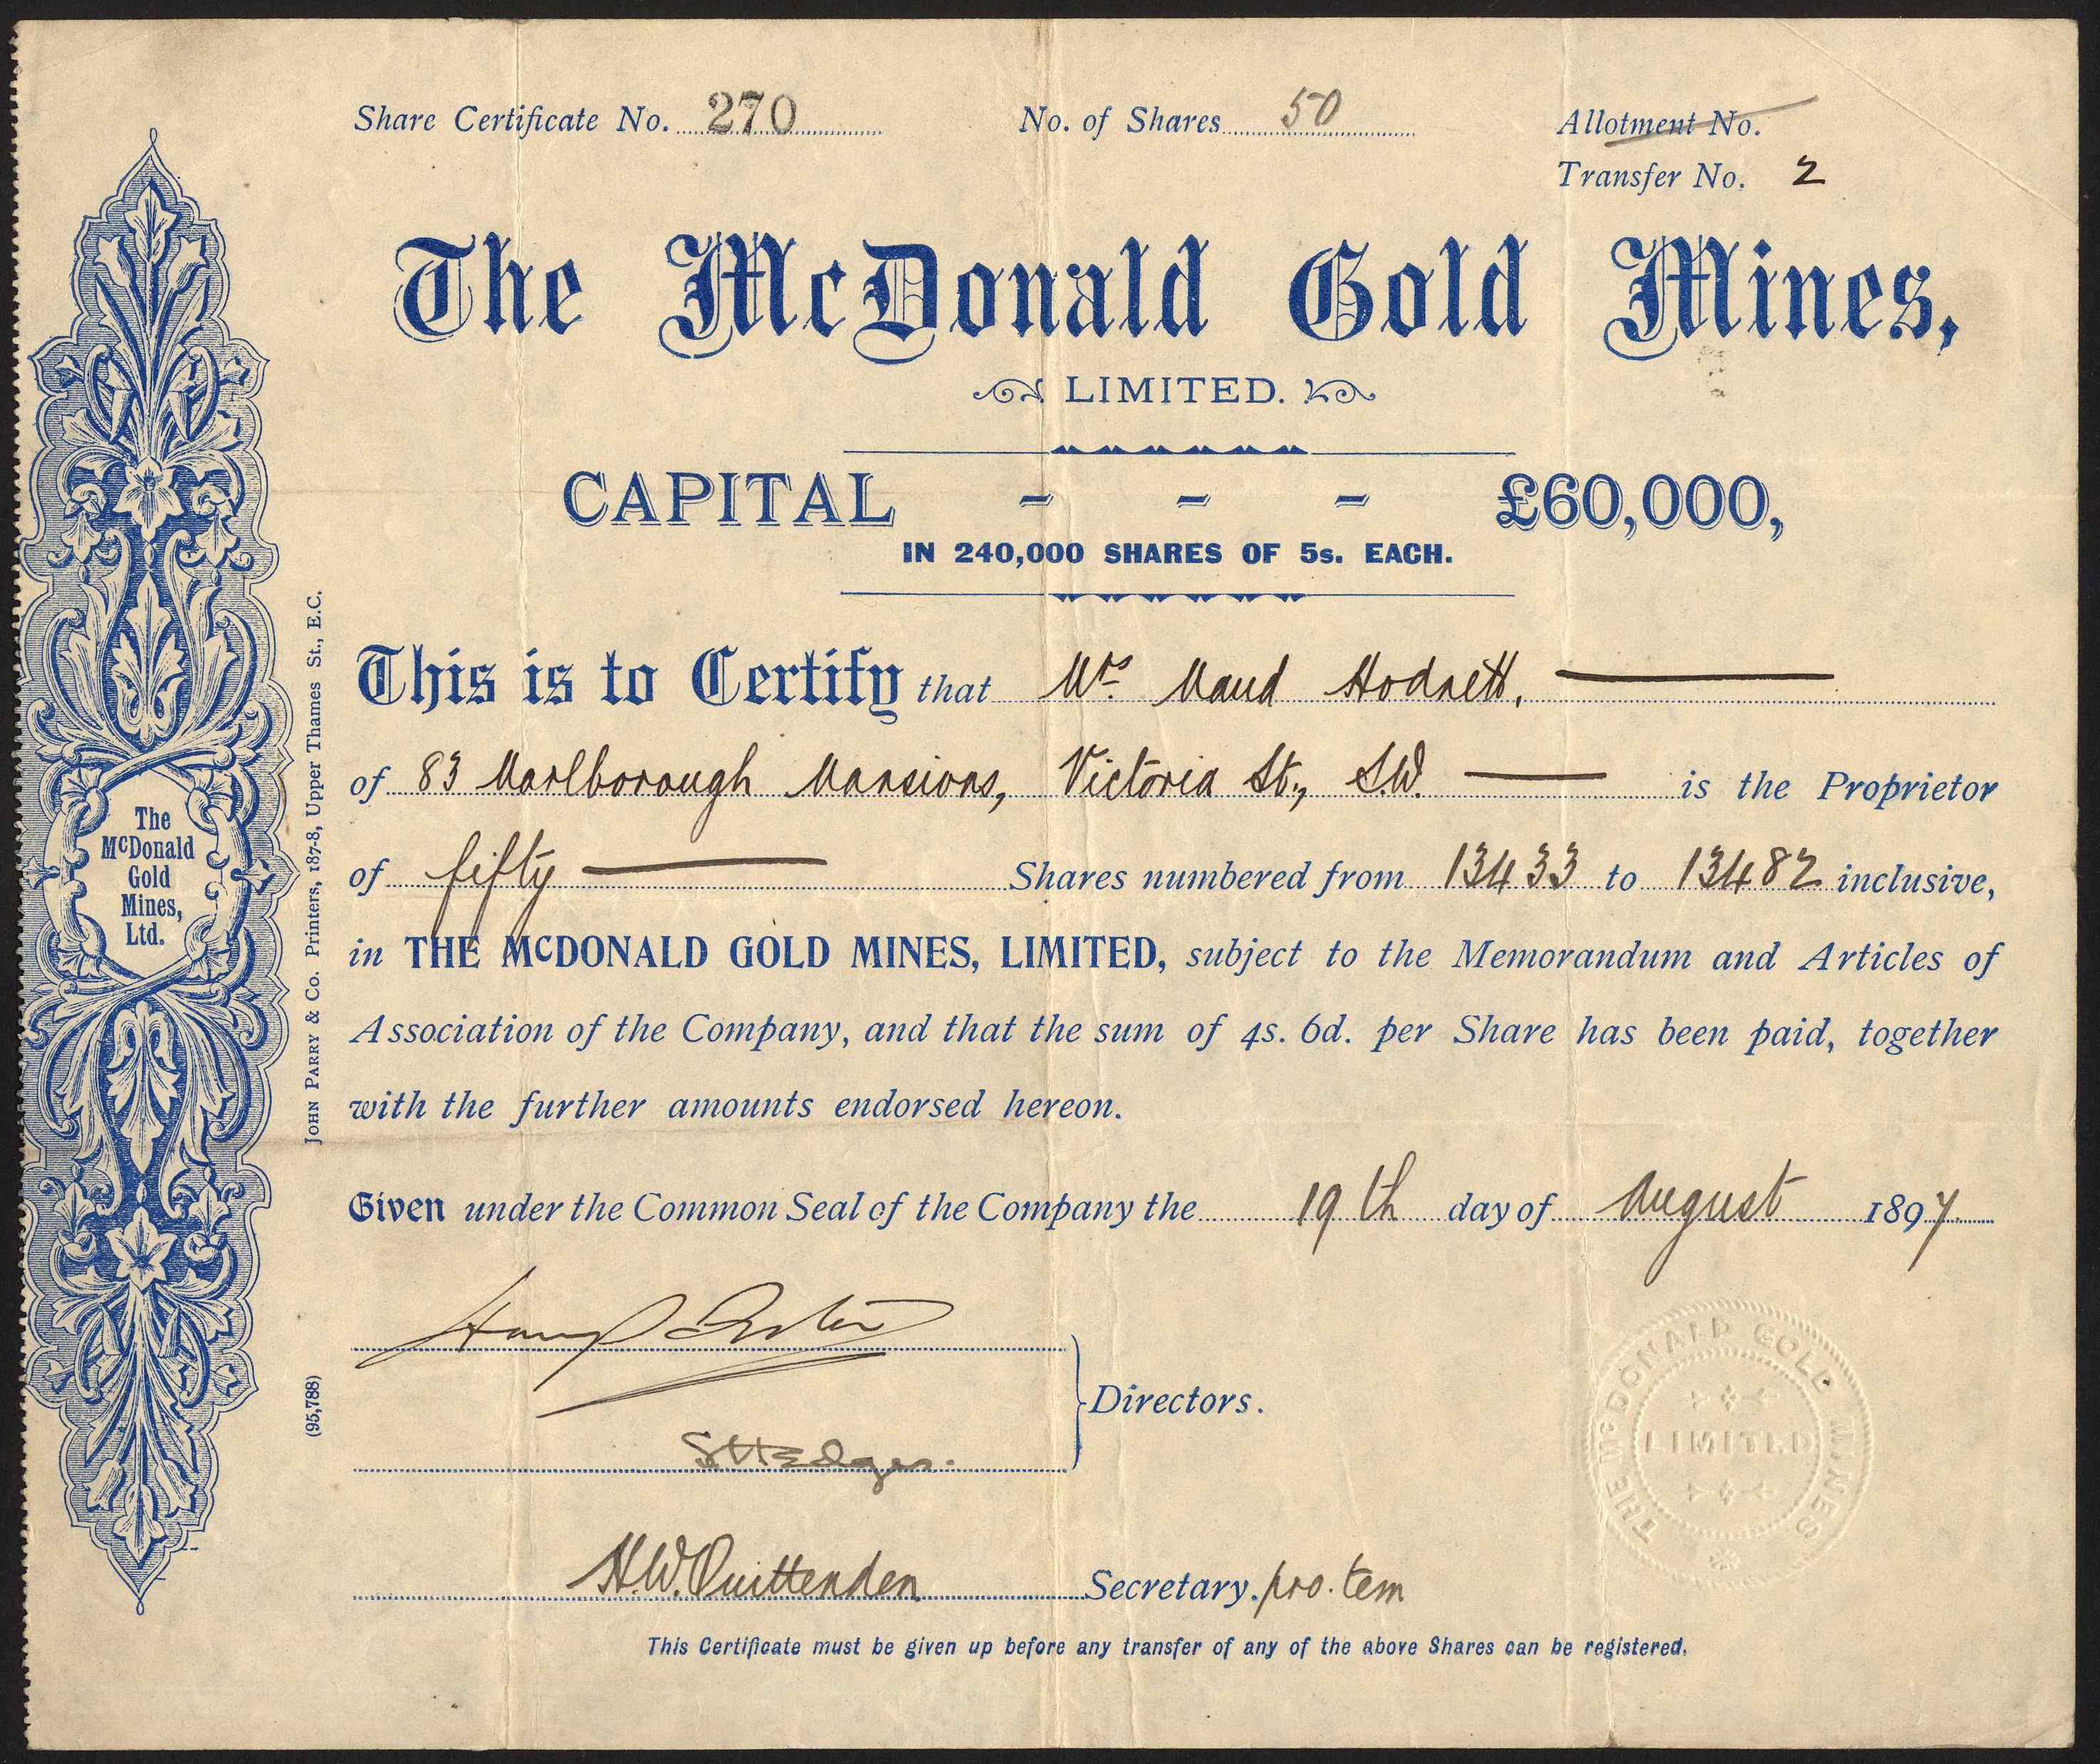 Share Certificate No. 270 No. of Shares 50 Allotment No.
Transfer No. 2
The McDonald Gold Mines,
LIMITED.
CAPITAL - - - £60,000,
IN 240,000 SHARES OF 5s. EACH.
This is to Certify that Mrs. Maud Hodnett,
of 83 Marlborough Mansions, Victoria St., S.W. is the Proprietor
of fifty Shares numbered from 13433 to 13482 inclusive,
in THE McDONALD GOLD MINES, LIMITED, subject to the Memorandum and Articles of
Association of the Company, and that the sum of 4s. 6d. per Share has been paid, together
with the further amounts endorsed hereon.
Given under the Common Seal of the Company the 19th day of August 1897
Directors.
S H Edges.
H.W. Quittenden Secretary. pro. tem
This Certificate must be given up before any transfer of any of the above Shares can be registered.
The
McDonald
Gold
Mines,
Ltd.
JOHN PARRY & Co. Printers, 187-8, Upper Thames St., E.C.
(95,788)
THE McDONALD GOLD MINES
LIMITED